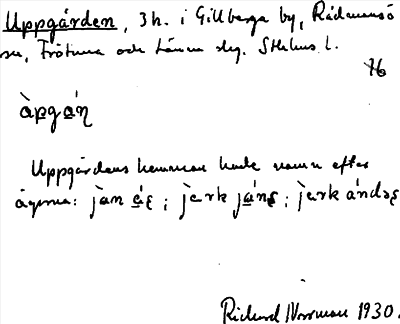 Uppgården, 3 h. i Gillberga by, Rådmansö
sn, Frötuna och Länna slg. Sthlms l.
àpgąń
Uppgårdens hemman hade namn efter
ägarna: jàn ; jèrk ; jèrk ándəs
Richard Norrman 1930.